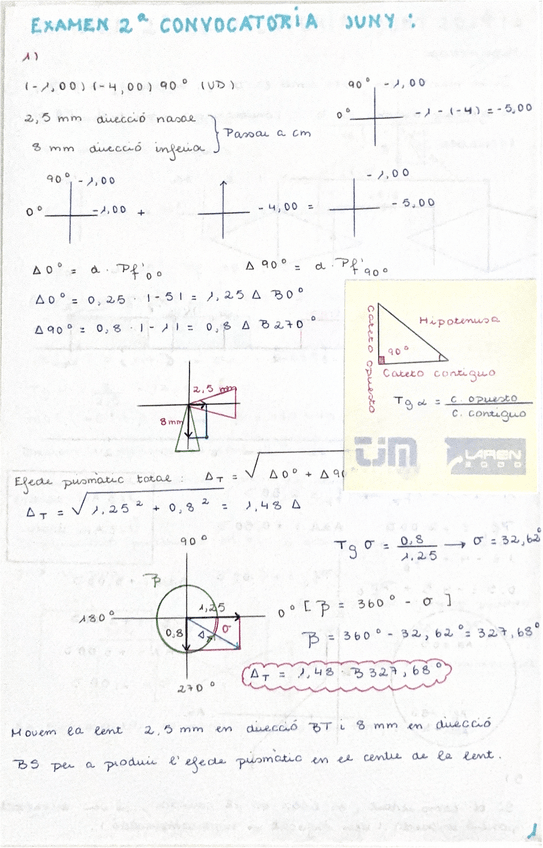 EXAMEN 2ª CONVOCATORIA JUNY:
1)
(-1,00) (-4,00) 90° (UD)
2,5 mm direcció nasal
8 mm direcció inferior
Passar a cm
90° -1,00
0° -1-(-4) = -5,00
90° -1,00
0° -1,00 + -4,00 = -1,00 -5,00
Δ0° = d · Pf'0° Δ90° = d · Pf'90°
Δ0° = 0,25 · |-5| = 1,25 Δ B0°
Δ90° = 0,8 · |-1| = 0,8 Δ B270°
Cateto opuesto
Hipotenusa
90°
Cateto contiguo
Tg α = c. opuesto / c. contiguo
TJM LAREN 2000
2,5 mm
8mm
Efecte prismàtic total: ΔT = √ Δ0° + Δ90
ΔT = √ 1,25² + 0,8² = 1,48 Δ
Tg σ = 0,8 / 1,25 → σ = 32,62°
90°
β
180° 1,25 0° [β = 360° - σ]
0,8 ΔT σ
β = 360° - 32,62° = 327,68°
270°
ΔT = 1,48 B 327,68°
Movem la lent 2,5 mm en direcció BT i 8 mm en direcció
BS per a produir l'efecte prismàtic en el centre de la lent.
1